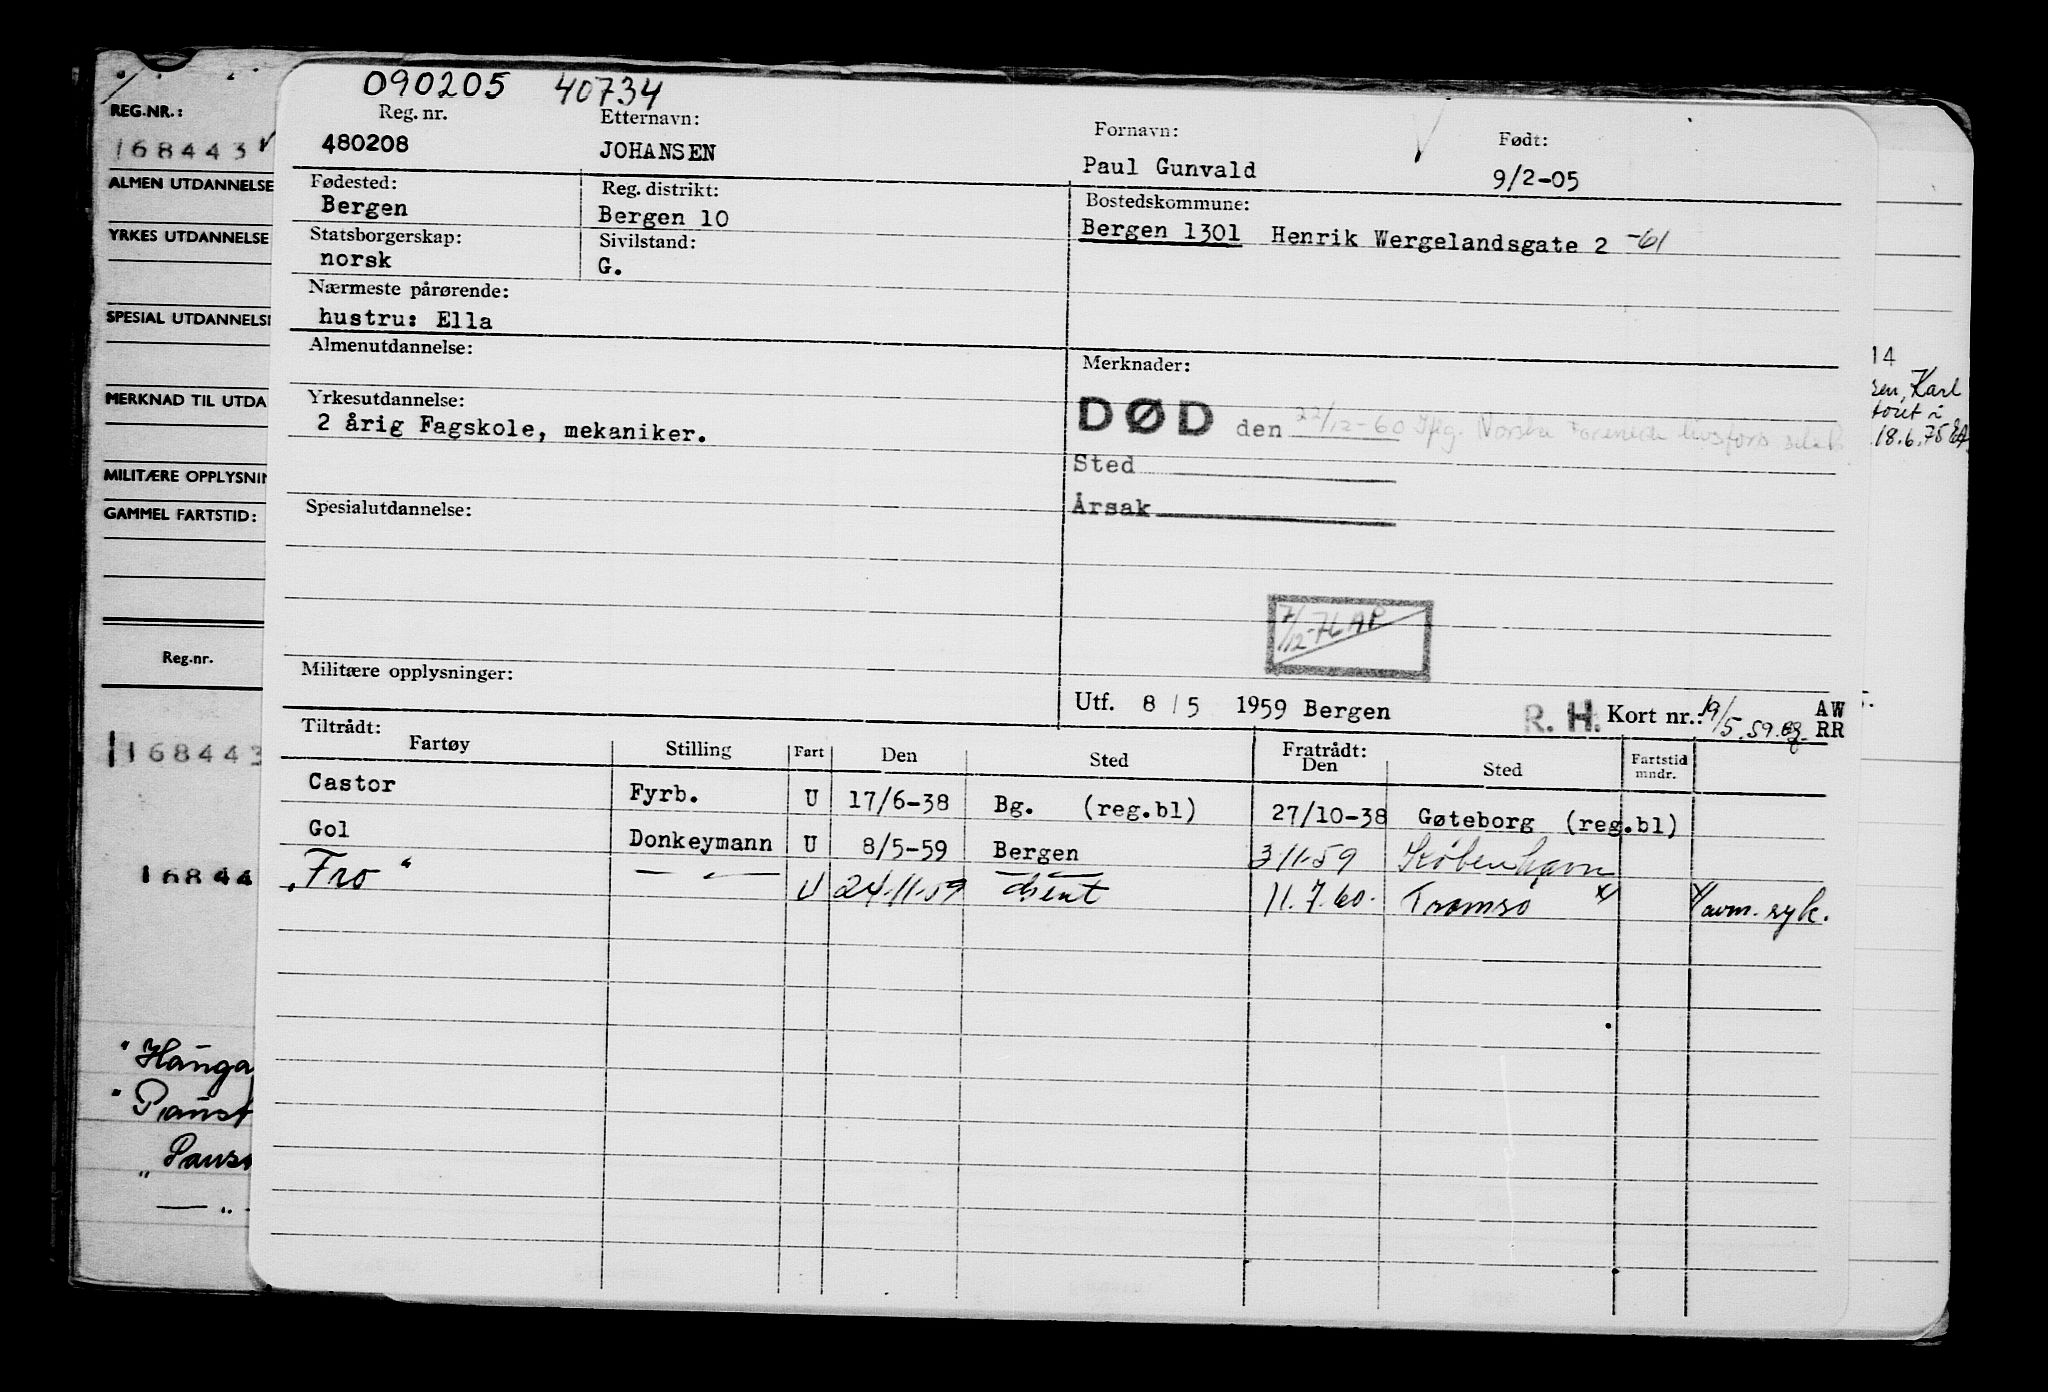 090205 40734
Reg. nr. Etternavn: Fornavn: Født:
480208 JOHANSEN Paul Gunvald 9/2-05
Fødested: Reg. distrikt: Bostedskommune:
Bergen Bergen 10 Bergen 1301 Henrik Wergelandsgate 2 -61
Statsborgerskap: Sivilstand:
norsk G.
Nærmeste pårørende:
hustru: Ella
Almenutdannelse: Merknader:
Yrkesutdannelse: DØD den 22/12-60 Norske Forenede livsfors
2 årig Fagskole, mekaniker.
Sted
Spesialutdannelse: Årsak
7/12-76 AP
Militære opplysninger:
Utf. 8/5 1959 Bergen R. H. Kort nr.: 19/5.59. AW
RR
Tiltrådt: Fratrådt:
Fartøy Stilling Fart Den Sted Den Sted Fartstid mndr.
Castor Fyrb. U 17/6-38 Bg. (reg.bl) 27/10-38 Gøteborg (reg.bl)
Gol Donkeymann U 8/5-59 Bergen 3 11-59 København
"Fro" — " — U 24.11.59 11.7.60. Tromsø x/ x/ avm. syk.
REG.NR.:
168443
ALMEN UTDANNELSE
YRKES UTDANNELSE
SPESIAL UTDANNELS
MERKNAD TIL UTDA
MILITÆRE OPPLYSNIN
GAMMEL FARTSTID:
Reg.nr.
168443
16844
"Hånga
"Paust
"Paus
— " -
14
sen, Karl
18.6.75